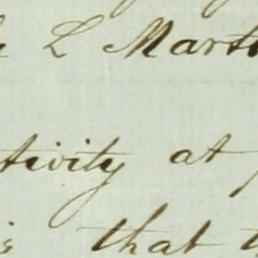 L Mart
tivity at
is that